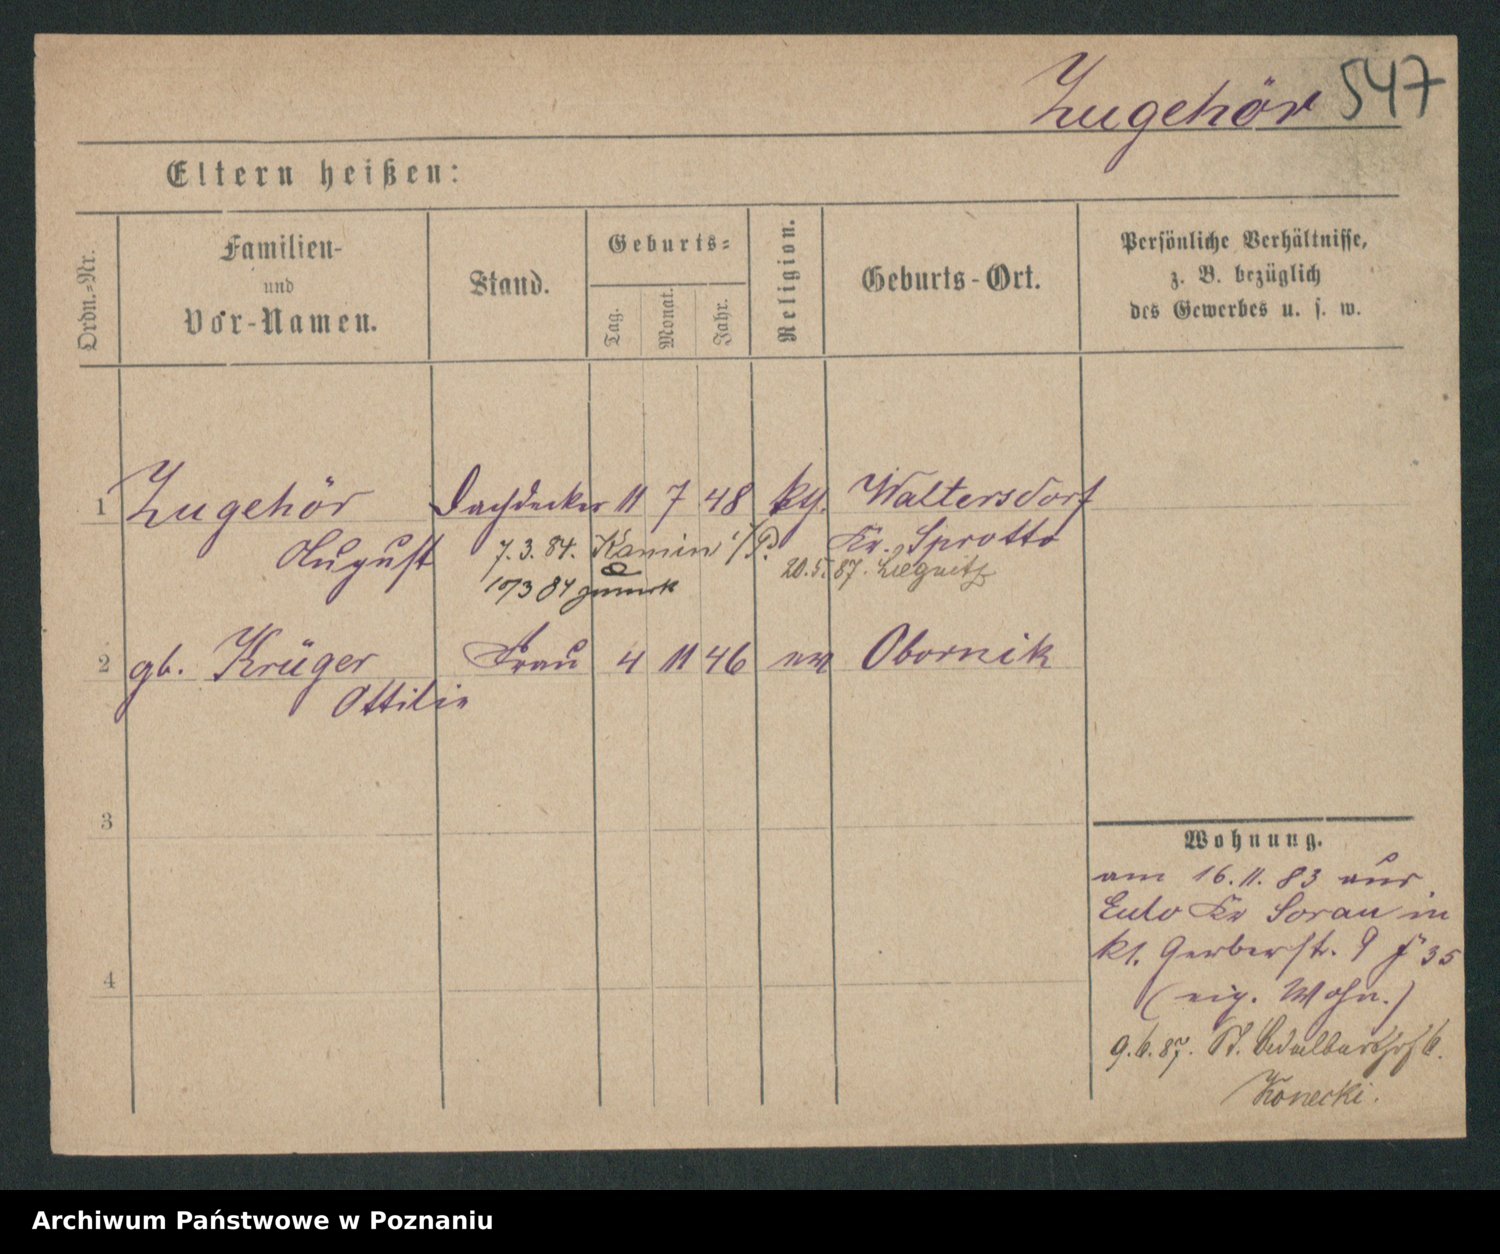 Zugehör 547
Eltern heißen:
Ordn.-Nr.
Familien-
und
Vor-Namen.
Stand.
Geburts-
Tag.
Monat.
Jahr.
Religion.
Geburts-Ort.
Persönliche Verhältnisse,
z. B. bezüglich
des Gewerbes u. s. w.
1 Zugehör Dachdecker 11 7 48 kth. Waltersdorf
August 7.3.84. Kamin i/P. Kr. Sprotto
10/3 84 zurück 20.5.87. Liegnitz
2 gb. Krüger Frau 4 11 46 ev Obornik
Ottilie
3
4
Wohnung.
am 16.11.83 aus
Eulo Kr Sorau in
kl. Gerberstr. 9 35
(eig. Wohn.)
9.6.87. St. Adalbertstr 6.
Konecki.
Archiwum Państwowe w Poznaniu